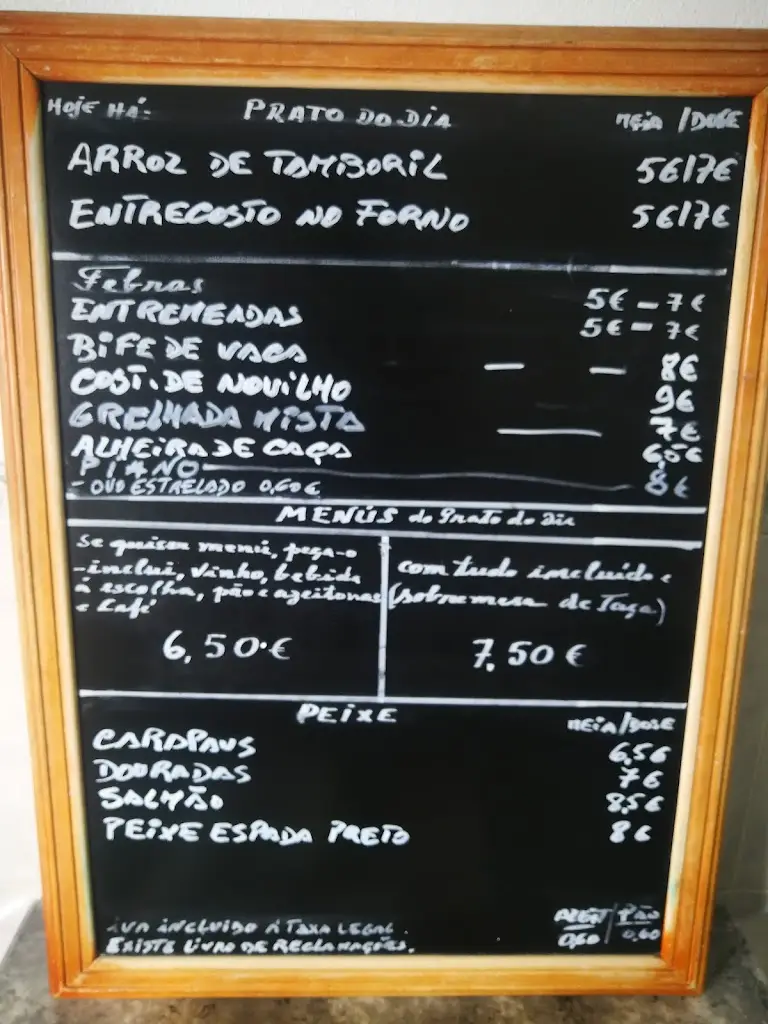 HOJE HÁ: PRATO DO DIA MEIA / DOSE
ARROZ DE TAMBORIL 5€/7€
ENTRECOSTO NO FORNO 5€/7€
Febras 5€ - 7€
ENTREMEADAS 5€ - 7€
BIFE DE VACA — — 8€
COST. DE NOVILHO 9€
GRELHADA MISTA — 7€
ALHEIRA DE CAÇA 6,5€
PIANO — 8€
- OVO ESTRELADO 0,60€
MENÚS do Prato do dia
Se quiser menú, peça-o
-inclui, vinho, bebida
á escolha, pão e azeitonas
e Café
6,50.€
com tudo incluído e
(sobremesa de Taça)
7,50 €
PEIXE MEIA/DOSE
CARAPAUS 6,5€
DOURADAS 7€
SALMÃO 8,5€
PEIXE ESPADA PRETO 8€
IVA INCLUIDO Á TAXA LEGAL.
EXISTE LIVRO DE RECLAMAÇÕES.
AZEIT / PÃO
0,60 / 0,60